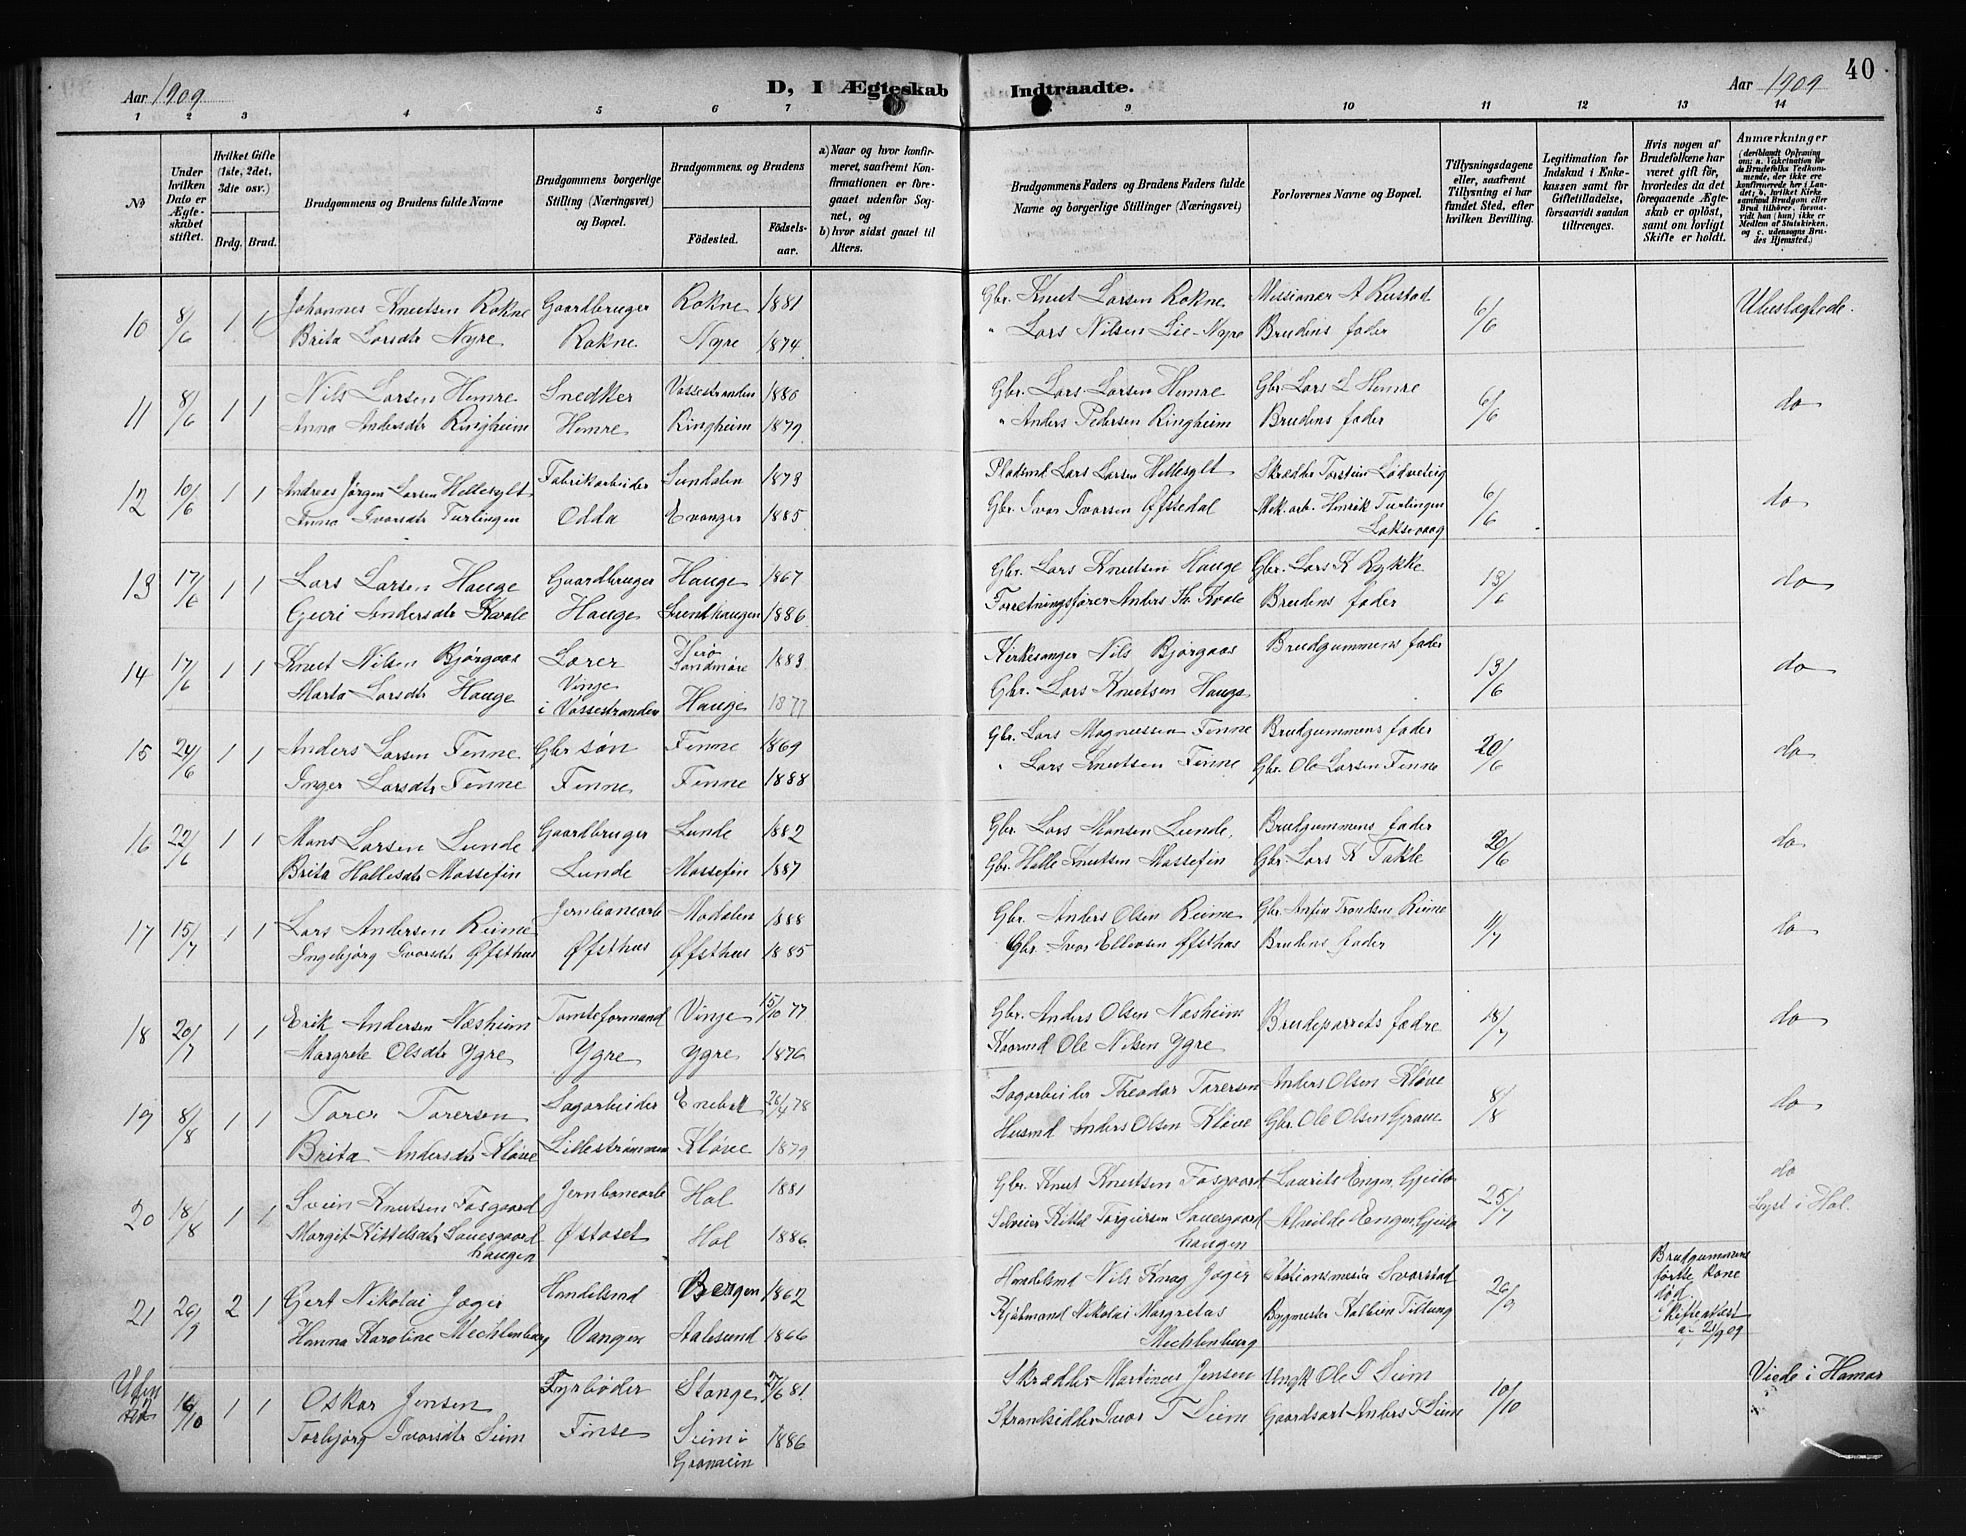 40
Aar 1909
D, I Ægteskab Indtraadte.
Aar 1909
1 2 3 4 5 6 7 9 10 11 12 13 14
№
Under hvilken Dato er Ægteskabet stiftet.
Hvilket Gifte (1ste, 2det, 3die osv.)
Brdg. Brud.
Brudgommens og Brudens fulde Navne
Brudgommens borgerlige Stilling (Næringsvei) og Bopæl.
Brudgommens og Brudens
Födested.
Födsels-aar.
a) Naar og hvor konfirmeret, saafremt Konfirmationen er foregaaet udenfor Sognet, og
b) hvor sidst gaaet til Alters.
Brudgommens Faders og Brudens Faders fulde Navne og borgerlige Stillinger (Næringsvei)
Forlovernes Navne og Bopæl.
Tillysningsdagene eller, saafremt Tillysning ei har fundet Sted, efter hvilken Bevilling.
Legitimation for Indskud i Enkekassen samt for Giftetilladelse, forsaavidt saadan tiltrænges.
Hvis nogen af Brudefolkene har været gift för, hvorledes da det foregaaende Ægteskab er oplöst, samt om lovligt Skifte er holdt.
Anmærkninger
(deriblandt Oplysning om: a. Vakcination for de Brudefolks Vedkommende, der ikke ere konfirmerede her i Landet; b. hvilket Kirkesamfund Brudgom eller Brud tilhörer, forsaavidt han (hun) ikke er Medlem af Statskirken, og c. udensogns Brudes Hjemsted.)
10 8/6 1 1 Johannes Knutsen Rokne Gaardbruger Rokne 1881 Gbr. Knut Larsen Rokne Missionær A Rustad 6/6 Ubeslægtede.
Brita Larsdtr Nyre Rokne Nyre 1874 " Lars Nilsen Lie-Nyre Brudens fader
11 8/6 1 1 Nils Larsen Hemre Snedker Vossestranden 1880 Gbr. Lars Larsen Hemre Gbr Lars L Hemre 6/6 do
Anna Andersdtr Ringheim Hemre Ringheim 1879 " Anders Pedersen Ringheim Brudens fader
12 10/6 1 1 Andreas Jørgen Larsen Hellesylt Fabrikarbeider Sundalen 1873 Pladsmd Lars Larsen Hellesylt Skrædder Torstein Lødvetvig 6/6 do
Anna Ivarsdtr Turlingen Odda Evanger 1885 Gbr. Ivar Ivarsen Øfstedal Mek. arb. Henrik Turlingen
Laksevaag
13 17/6 1 1 Lars Larsen Hauge Gaardbruger Hauge 1867 Gbr. Lars Knutsen Hauge Gbr. Lars K Rykke 13/6 do
Guri Andersdtr Kvale Hauge Lundhaugen 1886 Forretningsfører Anders Th. Kvale Brudens fader
14 17/6 1 1 Knut Nilsen Bjørgaas Lærer Herø Søndmøre 1883 Kirkesanger Nils Bjørgaas Brudgummens fader 13/6 do
Marta Larsdtr Hauge Vinje i Vossestranden Hauge 1877 Gbr. Lars Knutsen Hauge
15 24/6 1 1 Anders Larsen Finne Gbr søn Finne 1869 Gbr. Lars Magnussen Finne Brudgummens fader 20/6 do
Inger Larsdtr Finne Finne Finne 1888 " Lars Knutsen Finne Gbr. Ole Larsen Finne
16 22/6 1 1 Mons Larsen Lunde Gaardbruger Lunde 1882 Gbr. Lars Monsen Lunde. Brudgummens fader 20/6 do
Brita Hallesdtr Mossefin Lunde Mossefin 1887 Gbr. Halle Knutsen Mossefin Gbr. Lars K Takle
17 15/7 1 1 Lars Andersen Reime Jernbanearb Modalen 1888 Gbr. Anders Olsen Reime Gbr. Anfin Trondsen Reime 11/7 do
Ingebjørg Ivarsdtr Øfsthus Øfsthus Øfsthus 1885 Gbr. Ivar Ellevsen Øfsthus Brudens fader
18 20/7 1 1 Erik Andersen Næsheim Tomteformand Vinje 15/10 77 Gbr. Anders Olsen Næsheim Brudeparrets fædre 18/7 do
Margrete Olsdtr Ygre Ygre Ygre 1876 Kaarmd Ole Nilsen Ygre
19 8/8 1 1 Torer Torersen Sagarbeider Eneba 26/4 78 Sagarbeider Theodor Torersen Anders Olsen Kløve 8/8 do
Brita Andersdtr Kløve Lillestrømmen Kløve 1879 Husmd Anders Olsen Kløve Gbr. Ole Olsen Grove
20 18/8 1 1 Svein Knutsen Fosgaard Jernbanearb Hol 1881 Gbr. Knut Knutsen Fosgaard Laurits Engen, Gjeilo 25/7 do
Margit Kittelsdtr Sauesgaard haugen Østaset Hol 1886. Kittel Torgiersen Sauesgaard haugen Engen Gjeilo Lyst i Hol.
21 26/9 2 1 Gert Nikolai Jæger Handelsmd Bergen 1862 Handelsmd Nils Knag Jæger Stationsmester Svarstad 26/9 Brudgummens første kone død. Skifteattest af 21/9 09
Hanna Karoline Mechlenburg Vangen Aalesund 1866 Kjøbmand Nikolai Margretus Mechlenburg Bygmester Kolbein Tillung
Uden No 16/10 1 1 Oskar Jensen Fyrbøder Stange 27/6 81 Skrædder Martinus Jensen Ungk Ole I Seim 10/10 Viede i Hamar
Torbjørg Ivarsdtr Seim Finse Seim i Granvin 1886 Strandsidder Ivar T Seim Gaardsarb Anders I Seim